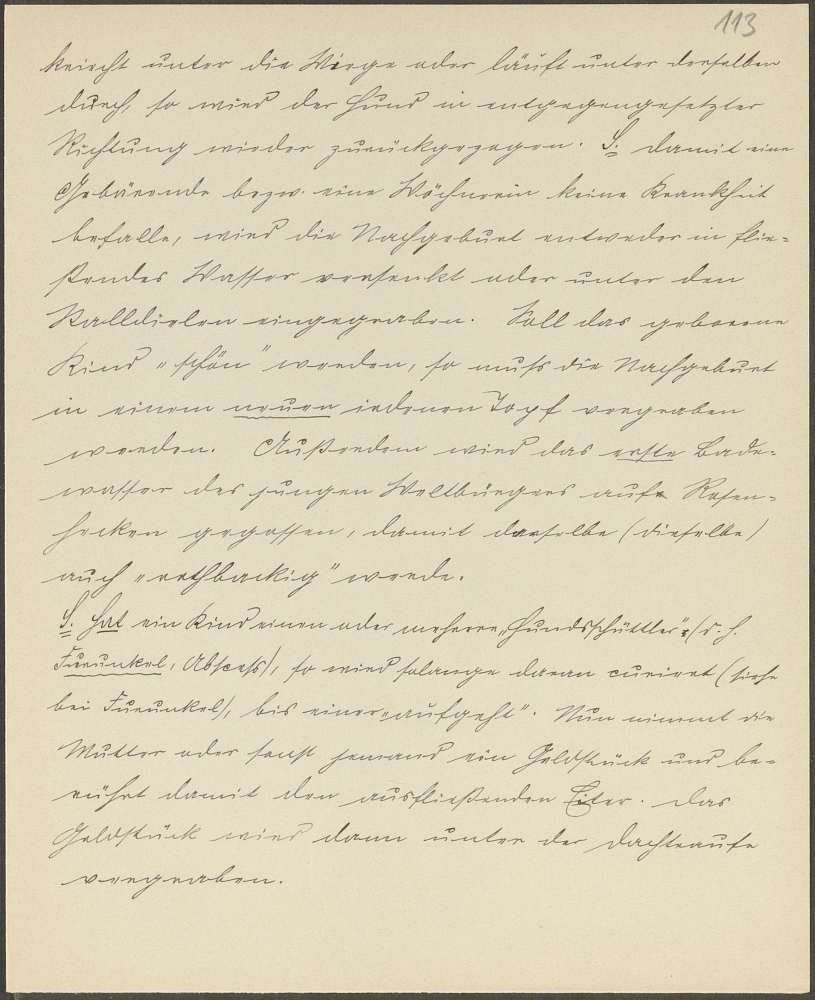 113
kriecht unter die Wiege oder läuft unter derselben
durch, so wird der Hund in entgegengesetzter
Richtung wieder zurückgezogen. S. damit eine
Gebärende bezw. eine Wöchnerin keine Krankheit
befalle, wird die Nachgeburt entweder in flie-
ßendes Wasser versenkt oder unter den
Stalldielen eingegraben. Soll das geborene
Kind „schön" werden, so muß die Nachgeburt
in einem neuen irdenen Topf vergraben
werden. Außerdem wird das erste Bade-
wasser des jungen Weltbürgers auf Rosen-
hecken gegossen, damit derselbe (dieselbe)
auch „rothbackig" werde.
S. Hat ein Kind einen oder mehrere „Hundsschüttler" (d. h.
Furunkel, Abscess), so wird solange daran curiert (siehe
bei Furunkel), bis einer „aufgeht". Nun nimmt die
Mutter oder sonst jemand ein Geldstück und be-
rührt damit den ausfließenden Eiter. Das
Geldstück wird dann unter der Dachtraufe
vergraben.